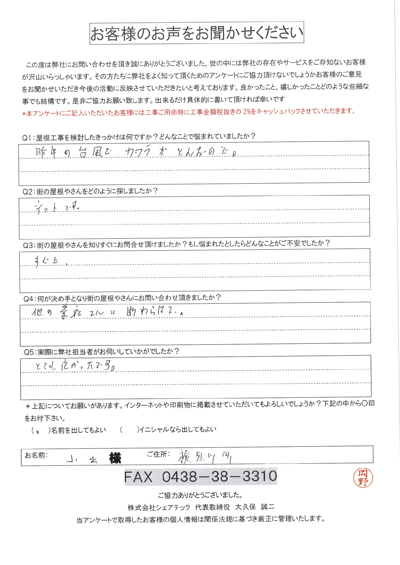 お客様のお声をお聞かせください
この度は弊社にお問い合わせを頂き誠にありがとうございました。世の中には弊社の存在やサービスをご存知ないお客様
が沢山いらっしゃいます。その方たちに弊社をよく知って頂くためのアンケートにご協力頂けないでしょうかお客様のご意見
をお聞かせいただき今後の活動に反映させていただきたいと考えております。良かったこと、嬉しかったことどのような些細な
事でも結構です。是非ご協力お願い致します。出来るだけ具体的に書いて頂ければ幸いです
*本アンケートにご記入いただいたお客様には工事ご用命時に工事金額税抜きの 2%をキャッシュバックさせていただきます。
Q1:屋根工事を検討したきっかけは何ですか?どんなことで悩まれていましたか?
昨年の台風で カワラがとんだので。
Q2:街の屋根やさんをどのように探しましたか?
ネットです。
Q3:街の屋根やさんを知りすぐにお問合せ頂けましたか?もし悩まれたとしたらどんなことがご不安でしたか?
すぐした。
Q4:何が決め手となり街の屋根やさんにお問い合わせ頂きましたか?
他の業社さんに断わられて。
Q5:実際に弊社担当者がお伺いしていかがでしたか?
とても良かったです。
*上記についてお願いがあります。インターネットや印刷物に掲載させていただいてもよろしいでしょうか?下記の中から〇印
をお付下さい。
( )名前を出してもよい ( )イニシャルなら出してもよい
お名前: 様 ご住所:
FAX 0438-38-3310
岡野
ご協力ありがとうございました。
株式会社シェアテック 代表取締役 大久保 誠二
当アンケートで取得したお客様の個人情報は関係法規に基づき厳正に管理いたします。